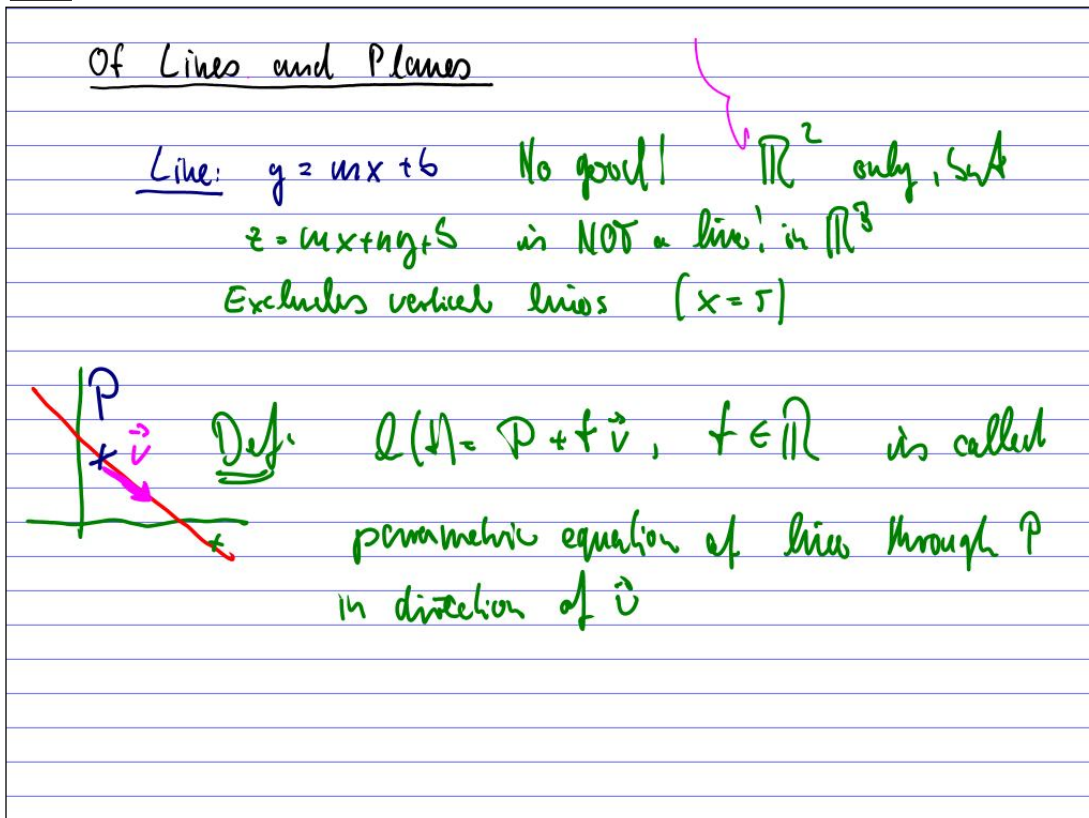 Of Lines and Planes
Line: y = mx + b No good! ℝ² only, but
z = mx+ny+b is NOT a line! in ℝ³
Excludes vertical lines (x = 5)
P
v⃗
Def: l(t) = P + t v⃗, t ∈ ℝ is called
parametric equation of line through P
in direction of v⃗